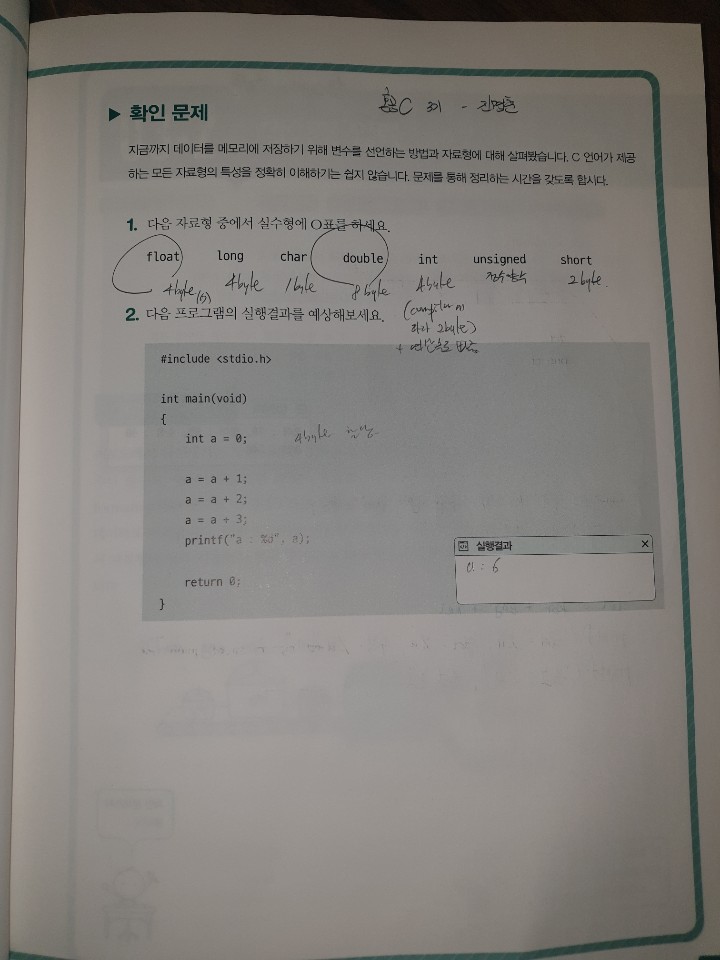 ▶ 확인 문제
혼공C 3장 -
지금까지 데이터를 메모리에 저장하기 위해 변수를 선언하는 방법과 자료형에 대해 살펴봤습니다. C 언어가 제공
하는 모든 자료형의 특성을 정확히 이해하기는 쉽지 않습니다. 문제를 통해 정리하는 시간을 갖도록 합시다.
1. 다음 자료형 중에서 실수형에 O표를 하세요.
float long char double int unsigned short
4byte 4byte 1byte 8byte 4byte 2byte
2. 다음 프로그램의 실행결과를 예상해보세요.
따라 2byte)
#include <stdio.h>
int main(void)
{
int a = 0; 4byte
a = a + 1;
a = a + 2;
a = a + 3;
printf("a : %d", a);
return 0;
}
실행결과 ×
a : 6